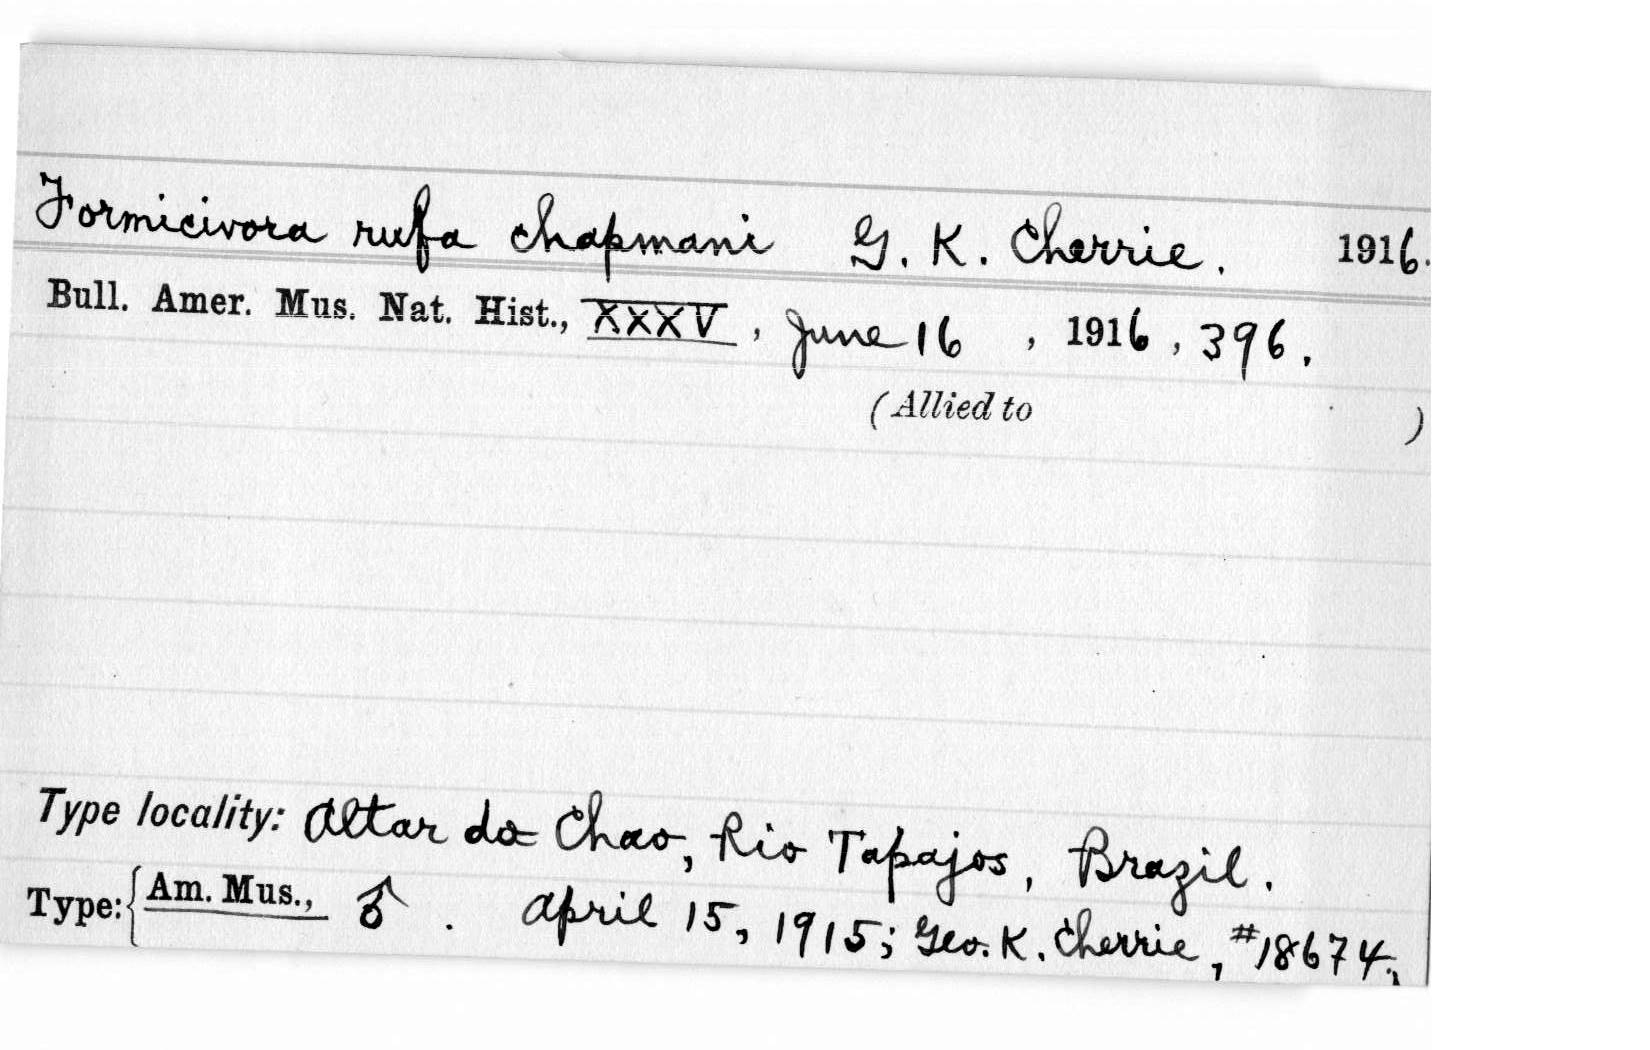 Formicivora rufa chapmani G. K. Cherrie. 1916.
Bull. Amer. Mus. Nat. Hist., XXXV, June 16, 1916, 396.
(Allied to )
Type locality: Altar do Chao, Rio Tapajos, Brazil.
Type: { Am. Mus., ♂. April 15, 1915; Geo. K. Cherrie, #18674.